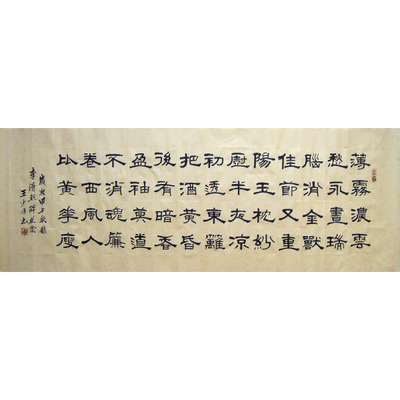 薄霧濃雲
愁永晝瑞
腦消金獸
佳節又重
陽玉枕紗
廚半夜涼
初透東籬
把酒黃昏
後有暗香
盈袖莫道
不消魂簾
卷西風人
比黃華瘦
李清照醉花陰